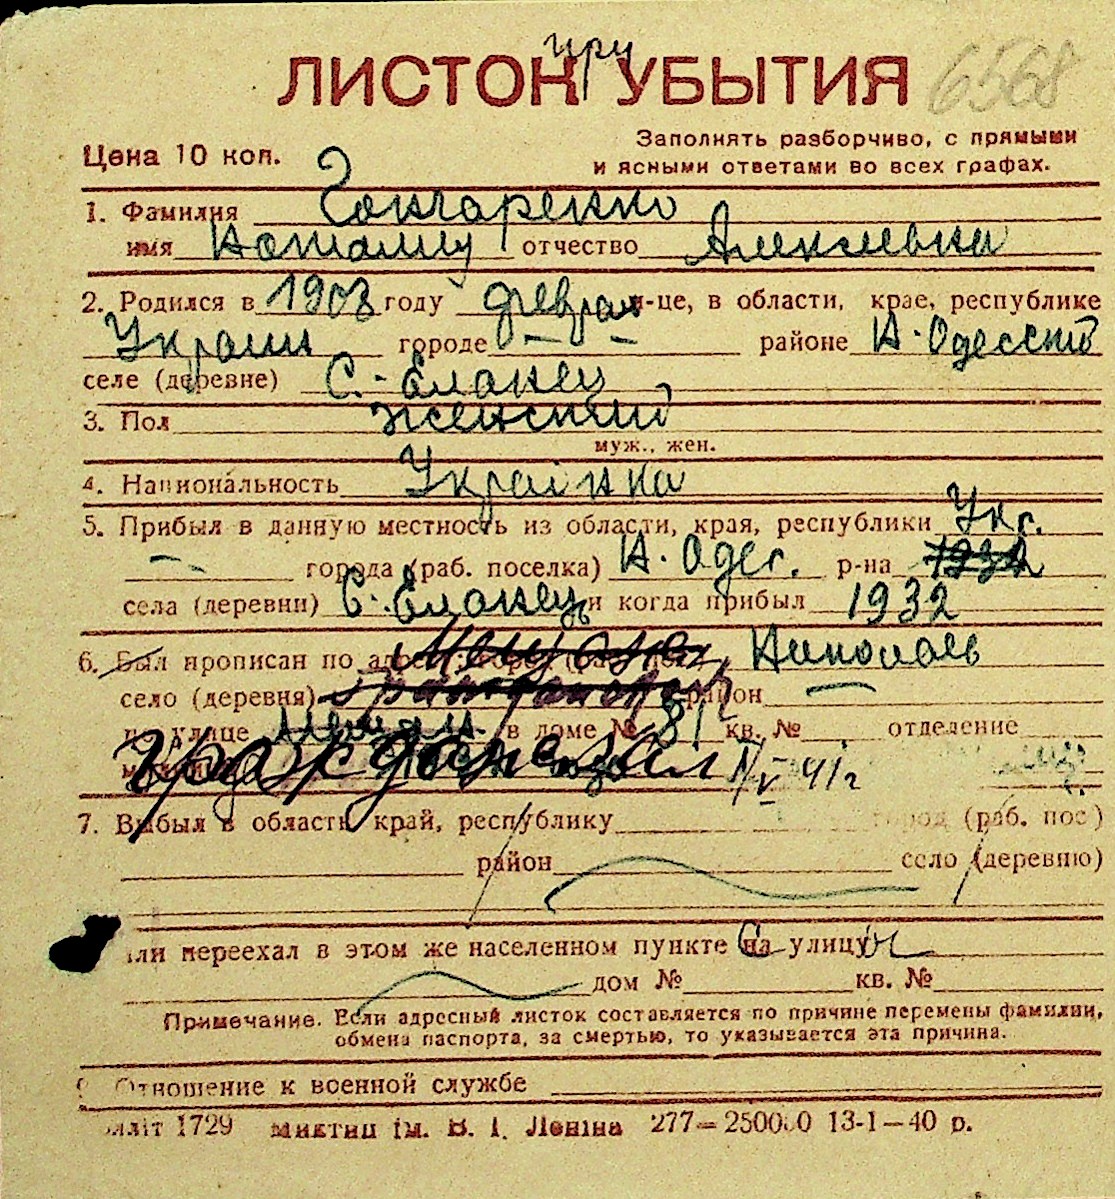 при
ЛИСТОК УБЫТИЯ 6568
Цена 10 коп. Заполнять разборчиво, с прямыми
и ясными ответами во всех графах.
1. Фамилия Гончаренко
имя отчество Алексеевна
2. Родился в 1903 году феврал м-це, в области, крае, республике
Украини городе — — районе Н-Одесский
селе (деревне) С.-Еланец
3. Пол женский
муж., жен.
4. Национальность Українка
5. Прибыл в данную местность из области, края, республики Укр.
— города (раб. поселка) Н. Одес. р-на 1932
села (деревни) С. Еланец и когда прибыл 1932
6. Был прописан по Николаев
село (деревня) район —
по улице в доме № 81 кв. № отделение
милиции Гражданская 1/V 41 г
7. Выбыл в область, край, республику город (раб. пос.)
район село (деревню)
или переехал в этом же населенном пункте на улицу
дом № кв. №
Примечание. Если адресный листок составляется по причине перемены фамилии,
обмена паспорта, за смертью, то указывается эта причина.
Отношение к военной службе
1729 ім. В. І. Леніна 277—250000 13-1—40 р.